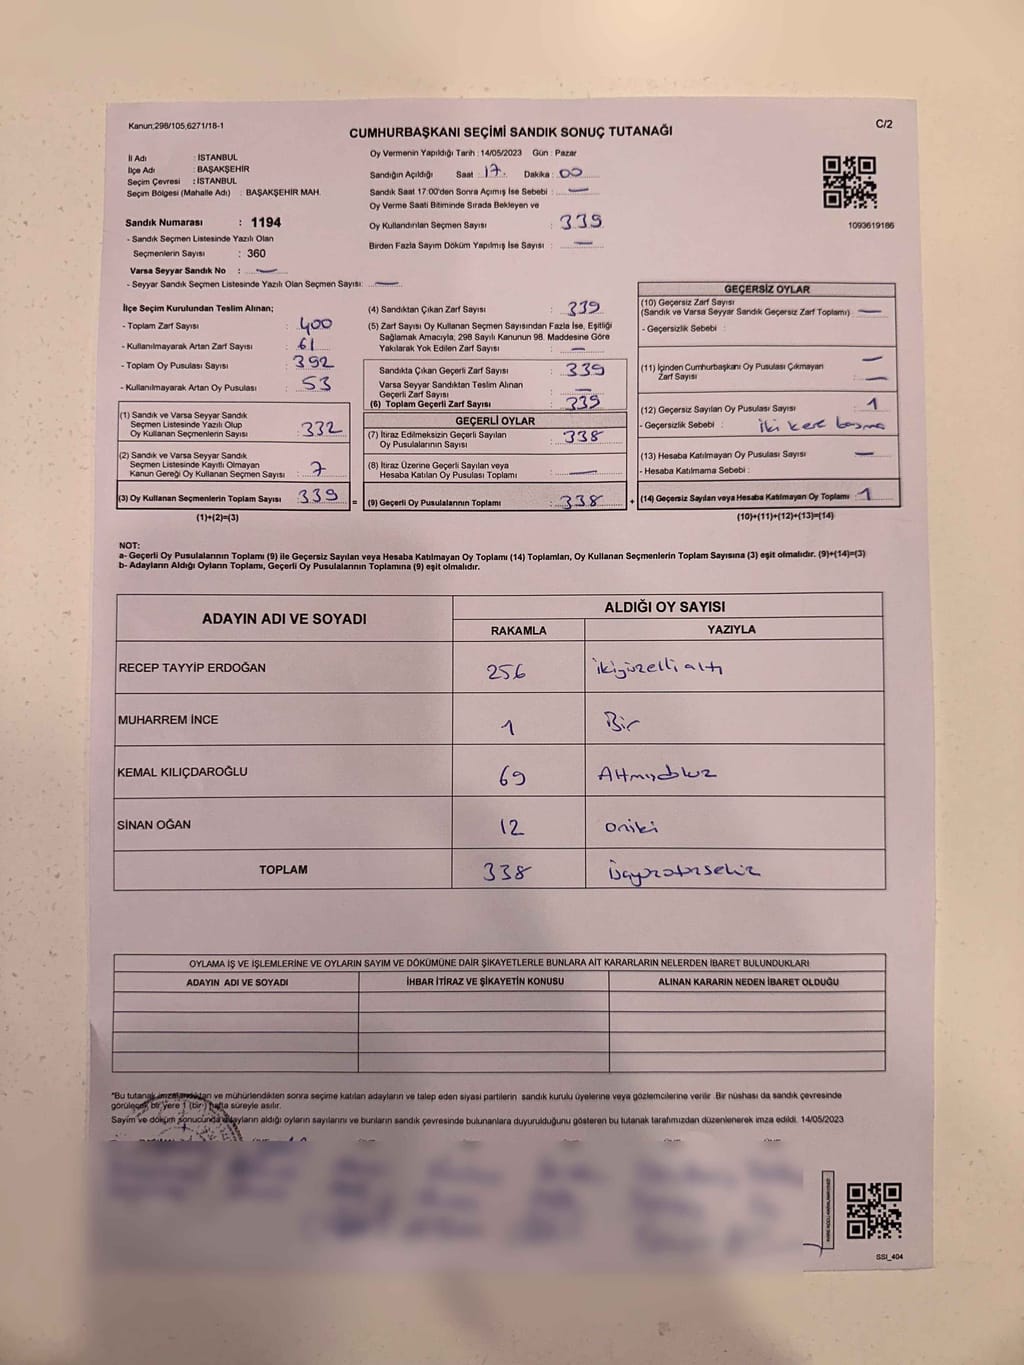 Kanun;298/105,6271/18-1
C/2
CUMHURBAŞKANI SEÇİMİ SANDIK SONUÇ TUTANAĞI
İl Adı : İSTANBUL
İlçe Adı : BAŞAKŞEHİR
Seçim Çevresi : İSTANBUL
Seçim Bölgesi (Mahalle Adı) : BAŞAKŞEHİR MAH.
Sandık Numarası : 1194
- Sandık Seçmen Listesinde Yazılı Olan
Seçmenlerin Sayısı : 360
Varsa Seyyar Sandık No : —
- Seyyar Sandık Seçmen Listesinde Yazılı Olan Seçmen Sayısı: —
Oy Vermenin Yapıldığı Tarih : 14/05/2023 Gün : Pazar
Sandığın Açıldığı Saat : 17. Dakika : 00
Sandık Saat 17:00'den Sonra Açımış İse Sebebi : —
Oy Verme Saati Bitiminde Sırada Bekleyen ve
Oy Kullandırılan Seçmen Sayısı : 339
Birden Fazla Sayım Döküm Yapılmış İse Sayısı : —
1093619186
İlçe Seçim Kurulundan Teslim Alınan;
- Toplam Zarf Sayısı : 400
- Kullanılmayarak Artan Zarf Sayısı : 61
- Toplam Oy Pusulası Sayısı : 392
- Kullanılmayarak Artan Oy Pusulası : 53
(1) Sandık ve Varsa Seyyar Sandık
Seçmen Listesinde Yazılı Olup
Oy Kullanan Seçmenlerin Sayısı : 332
(2) Sandık ve Varsa Seyyar Sandık
Seçmen Listesinde Kayıtlı Olmayan
Kanun Gereği Oy Kullanan Seçmen Sayısı : 7
(3) Oy Kullanan Seçmenlerin Toplam Sayısı : 339
(1)+(2)=(3)
(4) Sandıktan Çıkan Zarf Sayısı : 339
(5) Zarf Sayısı Oy Kullanan Seçmen Sayısından Fazla İse, Eşitliği
Sağlamak Amacıyla, 298 Sayılı Kanunun 98. Maddesine Göre
Yakılarak Yok Edilen Zarf Sayısı : —
Sandıkta Çıkan Geçerli Zarf Sayısı : 339
Varsa Seyyar Sandıktan Teslim Alınan
Geçerli Zarf Sayısı : —
(6) Toplam Geçerli Zarf Sayısı : 339
GEÇERLİ OYLAR
(7) İtiraz Edilmeksizin Geçerli Sayılan
Oy Pusulalarının Sayısı : 338
(8) İtiraz Üzerine Geçerli Sayılan veya
Hesaba Katılan Oy Pusulası Toplamı : —
= (9) Geçerli Oy Pusulalarının Toplamı : 338
GEÇERSİZ OYLAR
(10) Geçersiz Zarf Sayısı
(Sandık ve Varsa Seyyar Sandık Geçersiz Zarf Toplamı) : —
- Geçersizlik Sebebi :
—
(11) İçinden Cumhurbaşkanı Oy Pusulası Çıkmayan
Zarf Sayısı : —
(12) Geçersiz Sayılan Oy Pusulası Sayısı : 1
- Geçersizlik Sebebi : iki kere basma
(13) Hesaba Katılmayan Oy Pusulası Sayısı : —
- Hesaba Katılmama Sebebi :
+ (14) Geçersiz Sayılan veya Hesaba Katılmayan Oy Toplamı : 1
(10)+(11)+(12)+(13)=(14)
NOT:
a- Geçerli Oy Pusulalarının Toplamı (9) ile Geçersiz Sayılan veya Hesaba Katılmayan Oy Toplamı (14) Toplamları, Oy Kullanan Seçmenlerin Toplam Sayısına (3) eşit olmalıdır. (9)+(14)=(3)
b- Adayların Aldığı Oyların Toplamı, Geçerli Oy Pusulalarının Toplamına (9) eşit olmalıdır.
ADAYIN ADI VE SOYADI ALDIĞI OY SAYISI
RAKAMLA YAZIYLA
RECEP TAYYİP ERDOĞAN 256 ikiyüzelli altı
MUHARREM İNCE 1 Bir
KEMAL KILIÇDAROĞLU 69 Altmışdokuz
SİNAN OĞAN 12 oniki
TOPLAM 338 üçyüzotuzsekiz
OYLAMA İŞ VE İŞLEMLERİNE VE OYLARIN SAYIM VE DÖKÜMÜNE DAİR ŞİKAYETLERLE BUNLARA AİT KARARLARIN NELERDEN İBARET BULUNDUKLARI
ADAYIN ADI VE SOYADI İHBAR İTİRAZ VE ŞİKAYETİN KONUSU ALINAN KARARIN NEDEN İBARET OLDUĞU
*Bu tutanak imzalandıktan ve mühürlendikten sonra seçime katılan adayların ve talep eden siyasi partilerin sandık kurulu üyelerine veya gözlemcilerine verilir. Bir nüshası da sandık çevresinde
görülecek bir yere 1 (bir) hafta süreyle asılır.
Sayım ve döküm sonucunda adayların aldığı oyların sayılarını ve bunların sandık çevresinde bulunanlara duyurulduğunu gösteren bu tutanak tarafımızdan düzenlenerek imza edildi. 14/05/2023
SSI_404